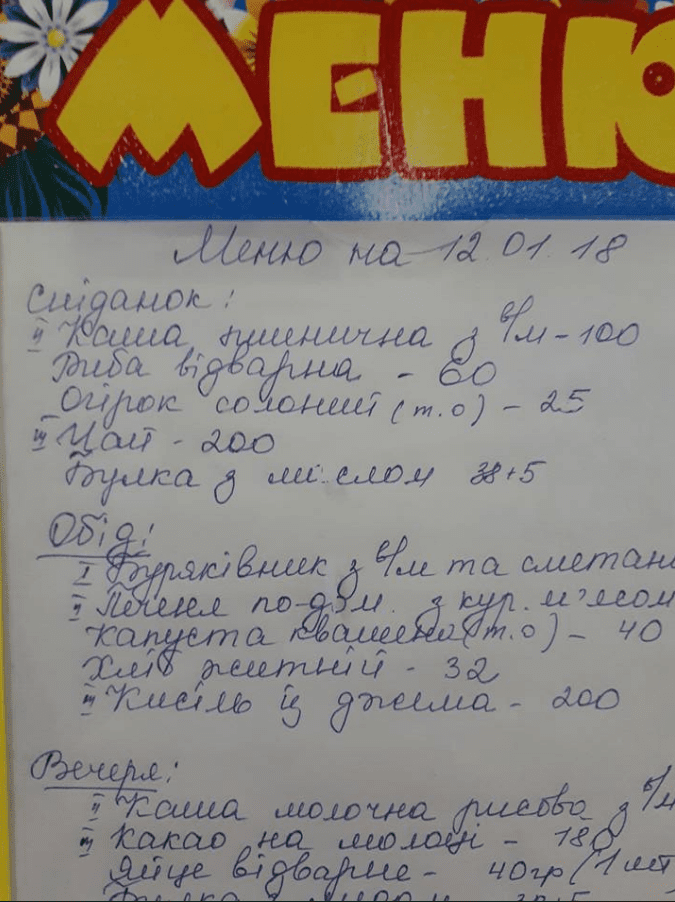 МЕНЮ
Меню на 12.01.18
Сніданок:
II Каша пшенична з в/м - 100
Риба відварна - 60
Огірок солоний (т.о) - 25
III Чай - 200
Булка з мислом 38+5
Обід:
I Буряківник з в/м та сметан
II Печеня по-дом. з кур. м'ясом
Капуста квашена (т.о) - 40
Хліб житній - 32
III Кисіль із джема - 200
Вечеря:
II Каша молочна рисова з в/м
III Какао на молоці - 180
Яйце відварне - 40гр (1 шт
Булка з